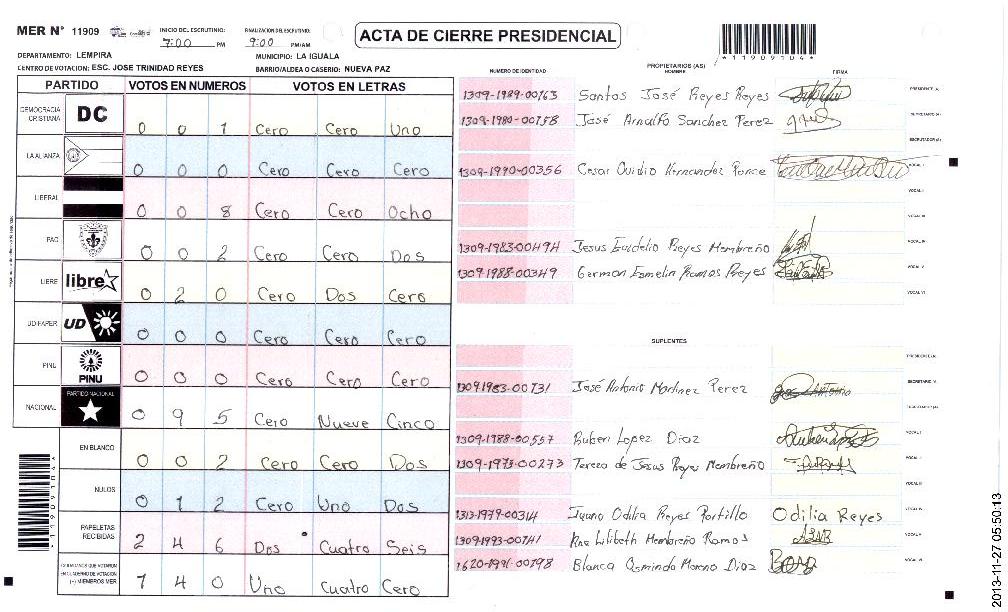 MER N° 11909
INICIO DEL ESCRUTINIO:
7:00 PM
FINALIZACION DEL ESCRUTINIO:
9:00 PM/AM
ACTA DE CIERRE PRESIDENCIAL
*11909104*
DEPARTAMENTO: LEMPIRA
MUNICIPIO: LA IGUALA
CENTRO DE VOTACION: ESC. JOSE TRINIDAD REYES
BARRIO/ALDEA O CASERIO: NUEVA PAZ
PARTIDO VOTOS EN NUMEROS VOTOS EN LETRAS
DEMOCRACIA CRISTIANA DC 0 0 1 Cero Cero Uno
LA ALIANZA 0 0 0 Cero Cero Cero
LIBERAL 0 0 8 Cero Cero Ocho
PAC 0 0 2 Cero Cero Dos
LIBRE libre 0 2 0 Cero Dos Cero
UD-FAPER UD 0 0 0 Cero Cero Cero
PINU PINU 0 0 0 Cero Cero Cero
NACIONAL PARTIDO NACIONAL 0 9 5 Cero Nueve Cinco
EN BLANCO 0 0 2 Cero Cero Dos
NULOS 0 1 2 Cero Uno Dos
PAPELETAS RECIBIDAS 2 4 6 Dos Cuatro Seis
CIUDADANOS QUE VOTARON EN CUADERNO DE VOTACION (+) MIEMBROS MER 1 4 0 Uno Cuatro Cero
*11909104*
PROPIETARIOS (AS)
NUMERO DE IDENTIDAD NOMBRE FIRMA
1309-1989-00163 Santos José Reyes Reyes PRESIDENTE (A)
1309-1980-00158 José Arnalfo Sanchez Perez SECRETARIO (A)
ESCRUTADOR (A)
1309-1990-00356 Cesar Ovidio Hernandez Ponce VOCAL I
VOCAL II
VOCAL III
1309-1983-00494 Jesus Membreño VOCAL IV
1309-1988-00349 German Ramos Reyes VOCAL V
VOCAL VI
SUPLENTES
PRESIDENTE (A)
1309-1983-00731 José Antonio Martinez Perez SECRETARIO (A)
ESCRUTADOR (A)
1309-1988-00557 Ruben Lopez Diaz VOCAL I
1309-1973-00273 Tereza de Jesus Reyes Membreño VOCAL II
VOCAL III
1313-1979-00314 Juana Odilia Reyes Portillo Odilia Reyes VOCAL IV
1309-1993-00741 Ana Lilibeth Membreño Ramos VOCAL V
1620-1991-00798 Blanca Osminda Moreno Diaz VOCAL VI
2013-11-27 05:50:13